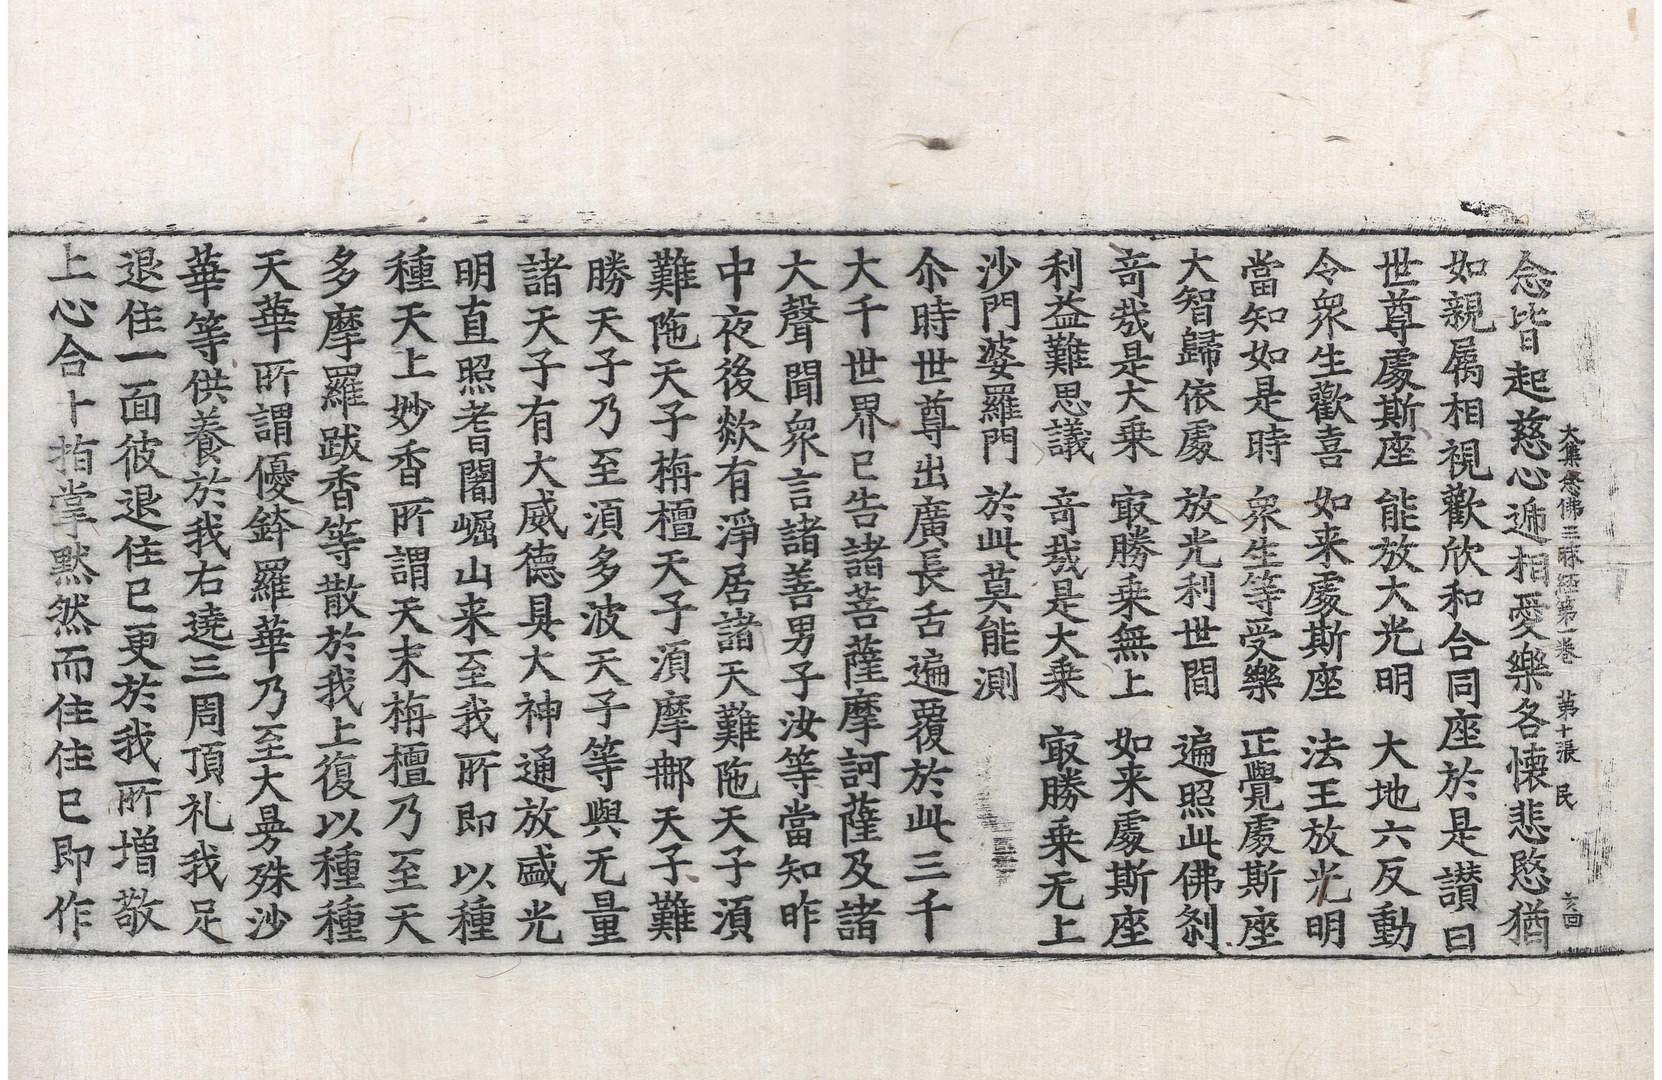 念皆起慈心遞相愛樂各懷悲愍猶
大集念佛三昧經第一卷 第十張 民 亥回
如親屬相視歡欣和合同座於是讃曰
世尊處斯座 能放大光明 大地六反動
令衆生歡喜 如来處斯座 法王放光明
當知如是時 衆生等受樂 正覺處斯座
大智歸依處 放光利世間 遍照此佛刹
竒㦲是大乗 㝡勝乗無上 如来處斯座
利益難思議 竒㦲是大乗 㝡勝乗无上
沙門婆羅門 於此莫能測
尒時世尊出廣長舌遍覆於此三千
大千世界已告諸菩薩摩訶薩及諸
大聲聞衆言諸善男子汝等當知昨
中夜後欻有淨居諸天難陁天子湏
難陁天子栴檀天子湏摩𨚗天子難
勝天子乃至湏多波天子等與无量
諸天子有大威德具大神通放盛光
明直照耆闍崛山来至我所即以種
種天上妙香所謂天末栴檀乃至天
多摩羅跋香等散於我上復以種種
天華所謂優鉢羅華乃至大曼殊沙
華等供養於我右遶三周頂礼我足
退住一面彼退住已更於我所增敬
上心合十指掌默然而住住已即作